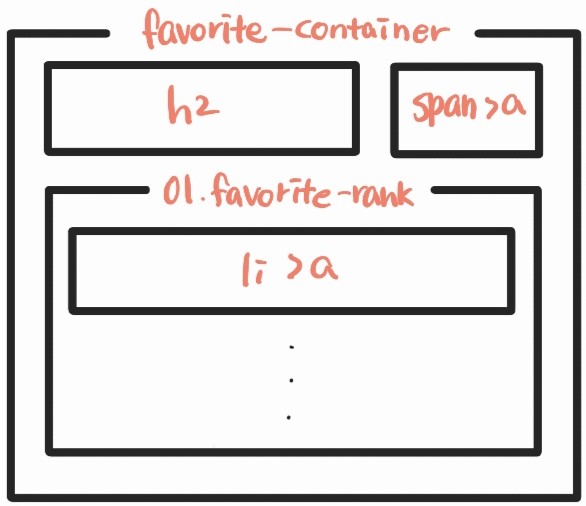 favorite-container
h2
span>a
ol.favorite-rank
li >a